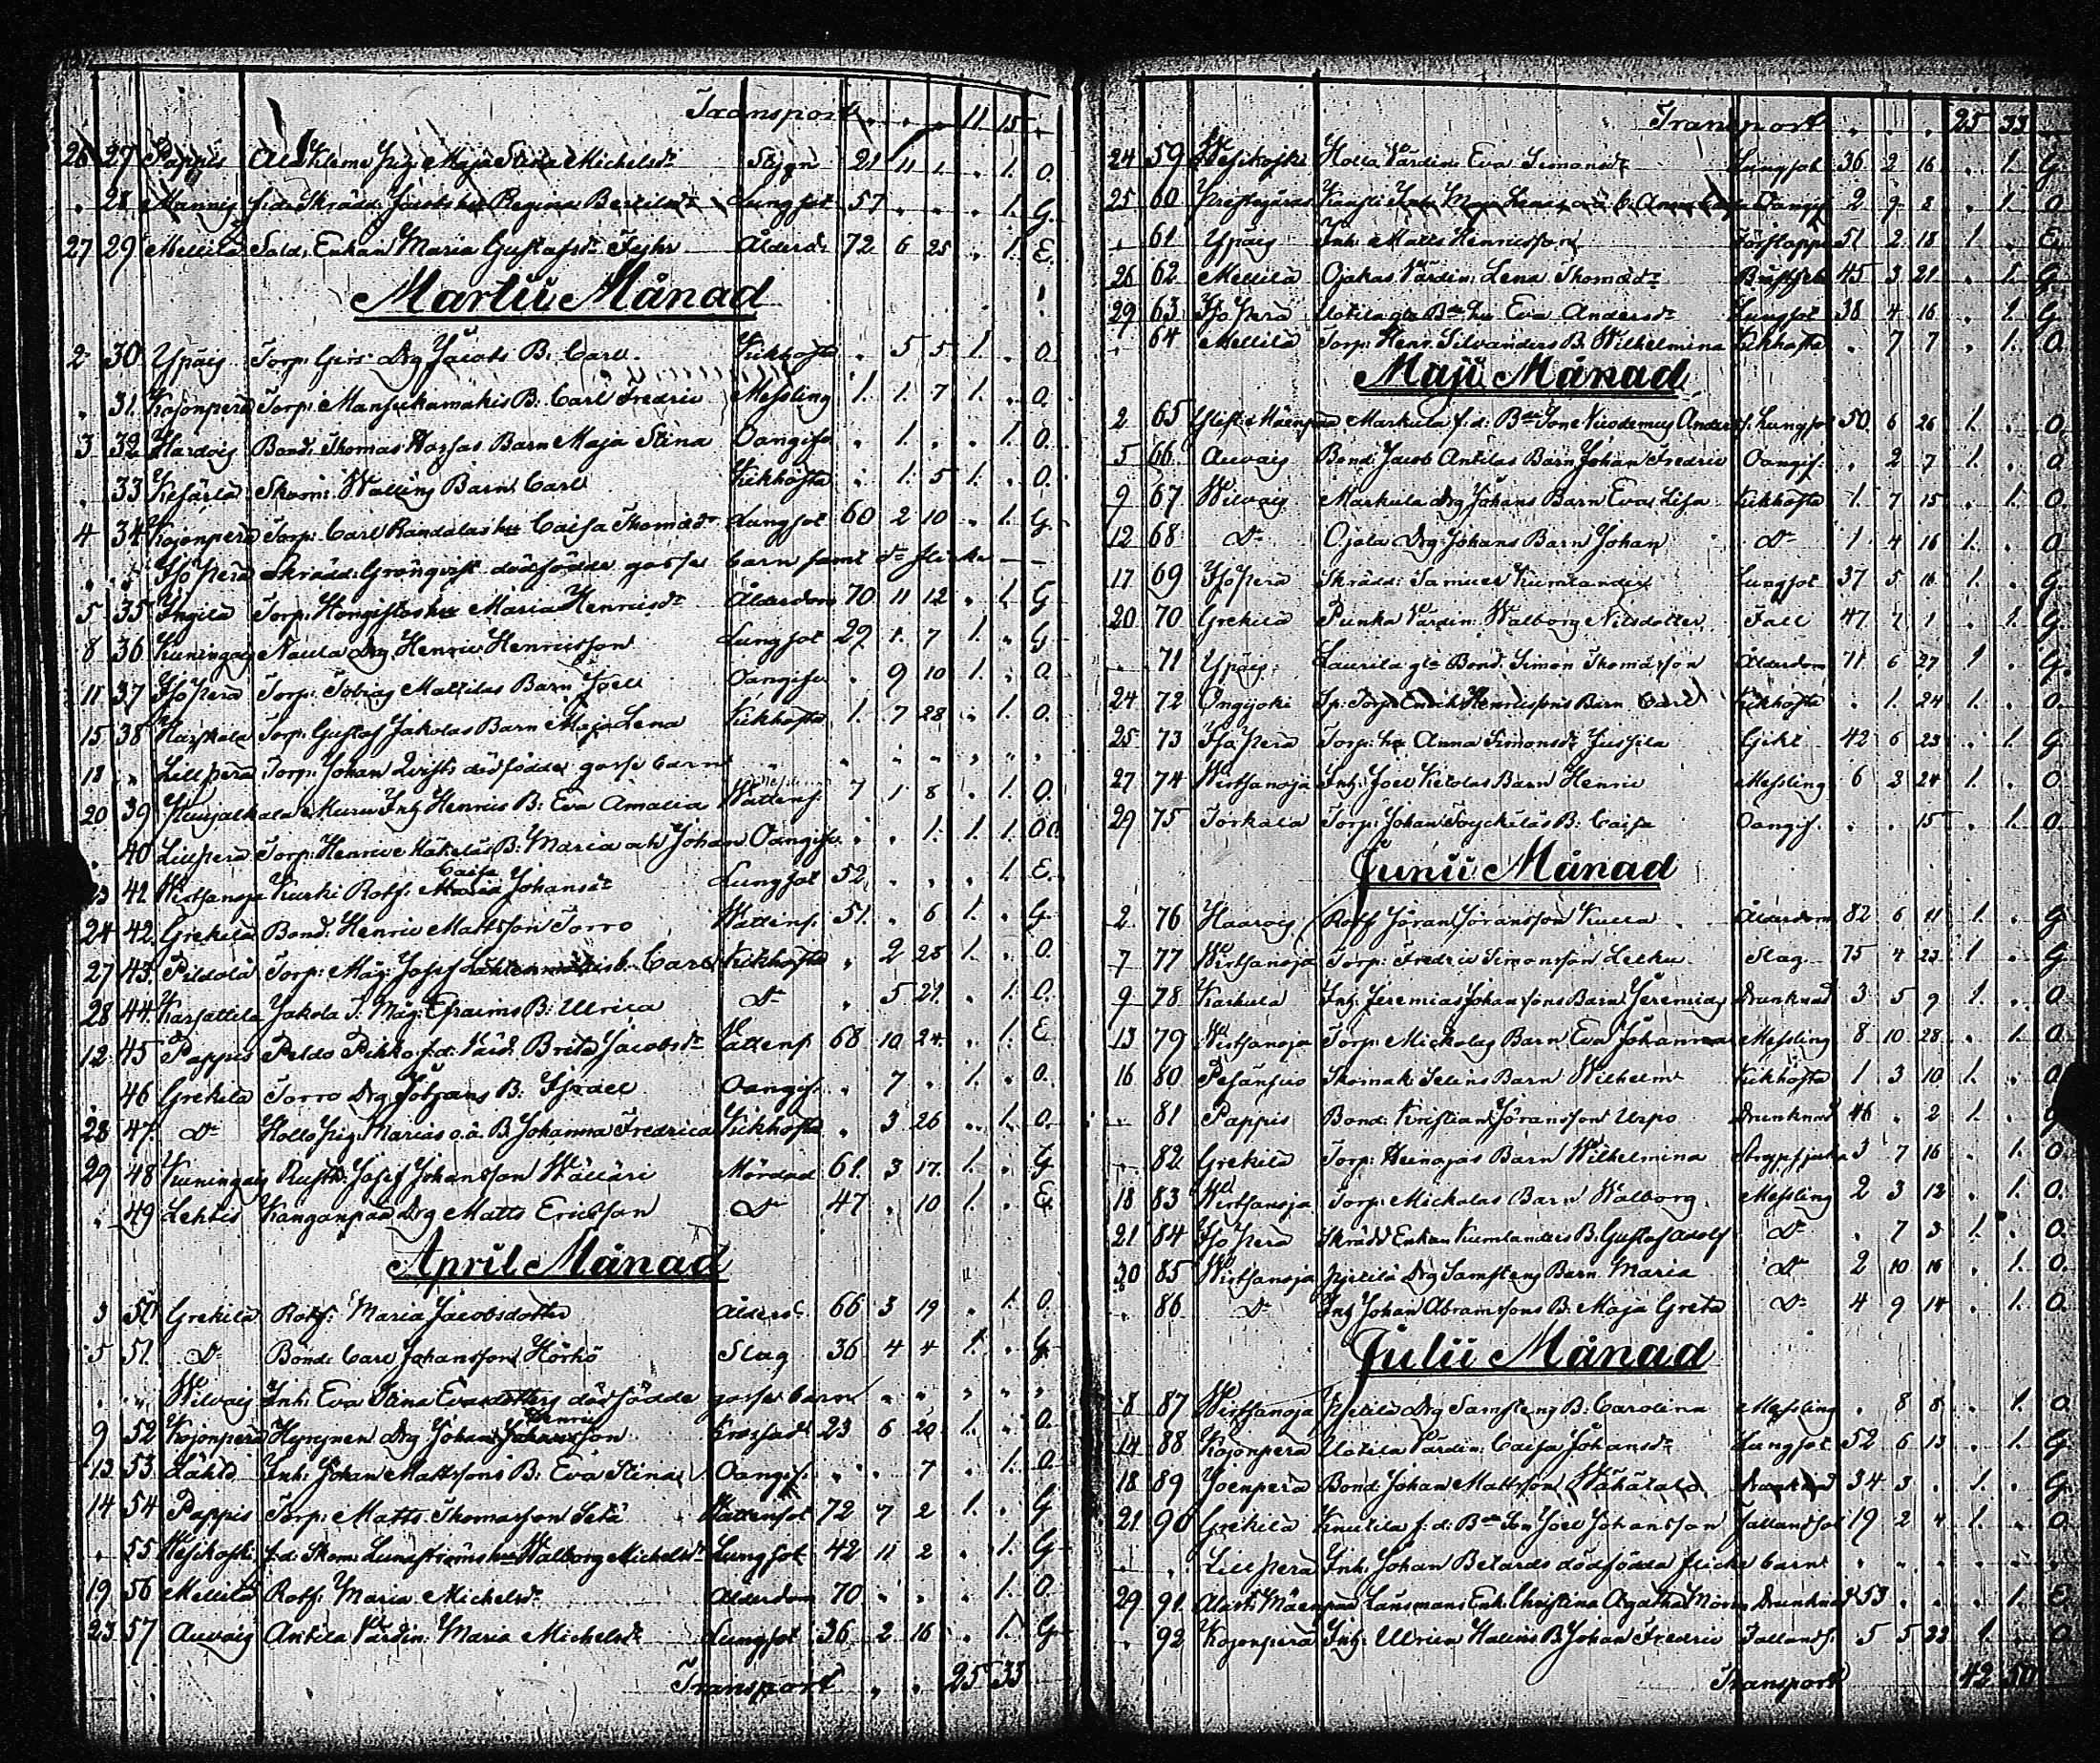 Transport . . . 11 15 .
26 27 Pappis Ala Kleme Pig. Maja Stina Michelsdr Stygn 21 11 1 . 1. O.
. 28 Mannis f.d. Skrädd. Jacobs hu Regina Bertilsdr Lungsot 57 . . . 1. G.
27 29 Mellilä Sold. Enkan Maria Gustafsdr Ålderd. 72 6 25 . 1. E.
Martii Månad
2 30 Ypäis Torp. Drg Jacobs B. Carl Kikhosta . 5 5 1. . O.
. 31 Kojonperä Torp. Mansikamäkis B. Carl Fredric Messling 1. 1. 7 1. . O.
3 32 Bond. Thomas Barn Maja Stina Oangifv. . 1. . . 1. O.
. 33 Skom. Wallins Barn Carl Kikhosta . 1. 5 1. . O.
4 34 Kojonperä Torp. Carl Randalas hu Caisa Thomædr Lungsot 60 2 10 . 1. G.
. . Isoperä Skrädd. Grönqvist dödfödde gosse barn samt do flicka
5 35 Yngilä Torp. Hongistos hu Maria Henricsdr Ålderdom 70 11 12 . 1. G
8 36 Kuningais Naula Drg Henric Henricsson Lungsot 29 1. 7 1. . G
11 37 Isoperä Torp. Tobias Mattilas Barn Joell Oangifv. . 9 10 1. . O.
15 38 Torp. Gustaf Jakolas Barn Maja Lena Kikhosta 1. 7 28 . 1. O.
18 . Lillperä Torp. Johan Qvists dödfödde gosse barn
20 39 Inh Henrics B. Eva Amalia Wattens. 7 1 8 . 1. O.
. 40 Lillperä Torp. Henric Häkeläs B. Maria och Johan Oangifv. . . 1. 1. 1. OO.
23 41 Wirtsanoja Kurki Rotf. Caisa Johansdr Lungsot 52 . . . 1. E.
24 42 Grekilä Bond. Henric Mattsson Torro Wattens. 51. . 6 1. . G.
27 43 Pildola Torp. Måg. Josef b. Carl Kikhosta . 2 28 1. . O.
28 44 Karsattila Jakola T. Måg. Efraims B. Ulrica Do . 5 21. . 1. O.
12 45 Pappis Peldo Pikko f.d. Värd. Brita Jacobsdr Wattens. 68 10 24 . 1. E
46 Grekilä Torro Drg B. Israel Oangif. . 7 . 1. . O.
28 47 Do Hollo Pig. Marias o.ä. B. Johanna Fredrica Kikhosta . 3 26 . 1. O.
29 48 Kuningais Rusth. Josef Johansson Wälläri Mördad 61. 3 17. 1. . G
. 49 Lehtis Kanganpää Drg Matts Ericsson Do 47 . 10 1. . E.
April Månad
3 50 Grekilä Rotf. Maria Jacobsdotter Ålderd. 66 3 19 . 1. O.
5 51. Do Bond. Carl Johansson Hörkö Slag 36 4 4 1. . G.
. . Wilvais Inh. Eva Stina Evasdotters dödfödde gosse barn
9 52 Kojonperä Hyrynen Drg Johan Henricson Krossad 23 6 20 1. . O.
13 53 Lähtö Inh. Johan Mattssons B. Eva Stina Oangif. . . 7 . 1. O.
14 54 Pappis Torp. Matts Thomasson Setä Wattensot 72 7 2 1. . G
. 55 Wesikoski f.d. Skom. Lundströms hu Walborg Michelsdr Lungsot 42 11 2 . 1. G
19 56 Mellilä Rotf. Maria Michelsdr Ålderdom 70 . . . 1. O.
23 57 Auvais Antila Värdin. Maria Michelsdr Lungsot 36 2 16 . 1. G
Transport . . 25 33
Transport . . . 25 33
24 59 Wesikoski Holla Värdin. Eva Simonsdr Lungsot 36 2 16 . 1. G.
25 60 Prestegården Oangif. 2 9 8 . 1. O
. 61 Ypäis Inh. Matts Henricsson 51 2 18 1. . E.
26 62 Mellilä Ojakas Värdin. Lena Thomædr Bröstsjuk 45 3 21 . 1. G.
29 63 Isoperä Uotila gla Bde hu Eva Andersdr Lungsot 38 4 16 . 1. G.
. 64 Mellilä Torp. Henr. Silvanders B. Wilhelmina Kikhosta . 7 7 . 1. O.
Maji Månad
2 65 Mäenpää Markula f.d. Bde Son Nicodemus Anders. Lungsot 50 6 26 1. . O
5 66 Auvais Bond. Jacob Antilas Barn Johan Fredric Oangif. . 2 7 1. . O
9 67 Wilvais Markula Drg Johans Barn Eva Lisa Kikhosta 1. 7 15 . 1. O.
12 68 Do Ojala Drg Johans Barn Johan Do 1 4 16 1. . O
17 69 Isoperä Skrädd. Samuel Kumlander Lungsot 37 5 16 1. . G.
20 70 Grekilä Punka Värdin. Walborg Nilsdotter Fall 47 7 1 . 1. G.
. 71 Ypäis Laurila gle Bond. Simon Thomasson Ålderdom 71 6 27 1. . G.
24 72 Ongijoki Sp. Torp. Enoch Henricssons Barn Carl Kikhosta . 1. 24 1. . O.
25 73 Isoperä Torp. hu Anna Simonsdr Jussila Gikt 42 6 23 . 1. G
27 74 Wirtsanoja Inh. Joel Ketolas Barn Henric Messling 6 3 24 1. . O.
29 75 Torkala Torp. Johan Töyckäläs B. Caisa Oangif. . . 15 . 1. O.
Junii Månad
2 76 Haarois Rotf. Jöran Jöransson Kulla Ålderdom 82 6 11 1. . G
7 77 Wirtsanoja Torp. Fredric Simonsson Leiku Slag 75 4 23 1 . G
9 78 Karkula Inh. Jeremias Johanssons Barn Jeremias Drunknad 3 5 9 1. . O
13 79 Wirtsanoja Torp. Mickolas Barn Eva Johanna Messling 8 10 28 . 1. O.
16 80 Pesänsuo Skomak. Selins Barn Wilhelm Kikhosta 1 3 10 1. . O
. 81 Pappis Bond. Kristian Jöransson Uspo Drunknad 46 . 2 1. . G
. 82 Grekilä Torp. Heinojas Barn Wilhelmina Strypsjuka 3 7 16 . 1. O.
18 83 Wirtsanoja Torp. Mickolas Barn Walborg Messling 2 3 12 . 1. O.
21 84 Isoperä Skrädd Enkan Kumlanders B. Gustaf Adolf Do . 7 3 1. . O.
30 85 Wirtsanoja Pietilä Drg Samstens Barn Maria Do 2 10 16 . 1. O.
. 86 Do Inh Johan Abramssons B. Maja Greta Do 4 9 14 . 1. O.
Julii Månad
8 87 Wirtsanoja Pietilä Drg Samstens B. Carolina Messling . 8 8 . 1. O.
14 88 Kojonperä Uotila Värdin. Caisa Johansdr Lungsot 52 6 13 . 1. G.
18 89 Joenperä Bond. Johan Mattsson Wähätalo Drunknad 34 3 . 1. . G.
21 90 Grekilä Knutila f.d. Bde Son Joel Johansson Fallandsot 19 2 4 1. . O.
. . Lillperä Inh. Johan Betards dödfödda flicke barn
29 91 Alast. Mäenpää Länsmans Enk. Christina Agatha Morin Drunknad 53 . . . 1. E.
. 92 Kojonperä Inh. Ulrica Halins B. Johan Fredric Fallands. 5 5 22 1. . O.
Transport 42 50